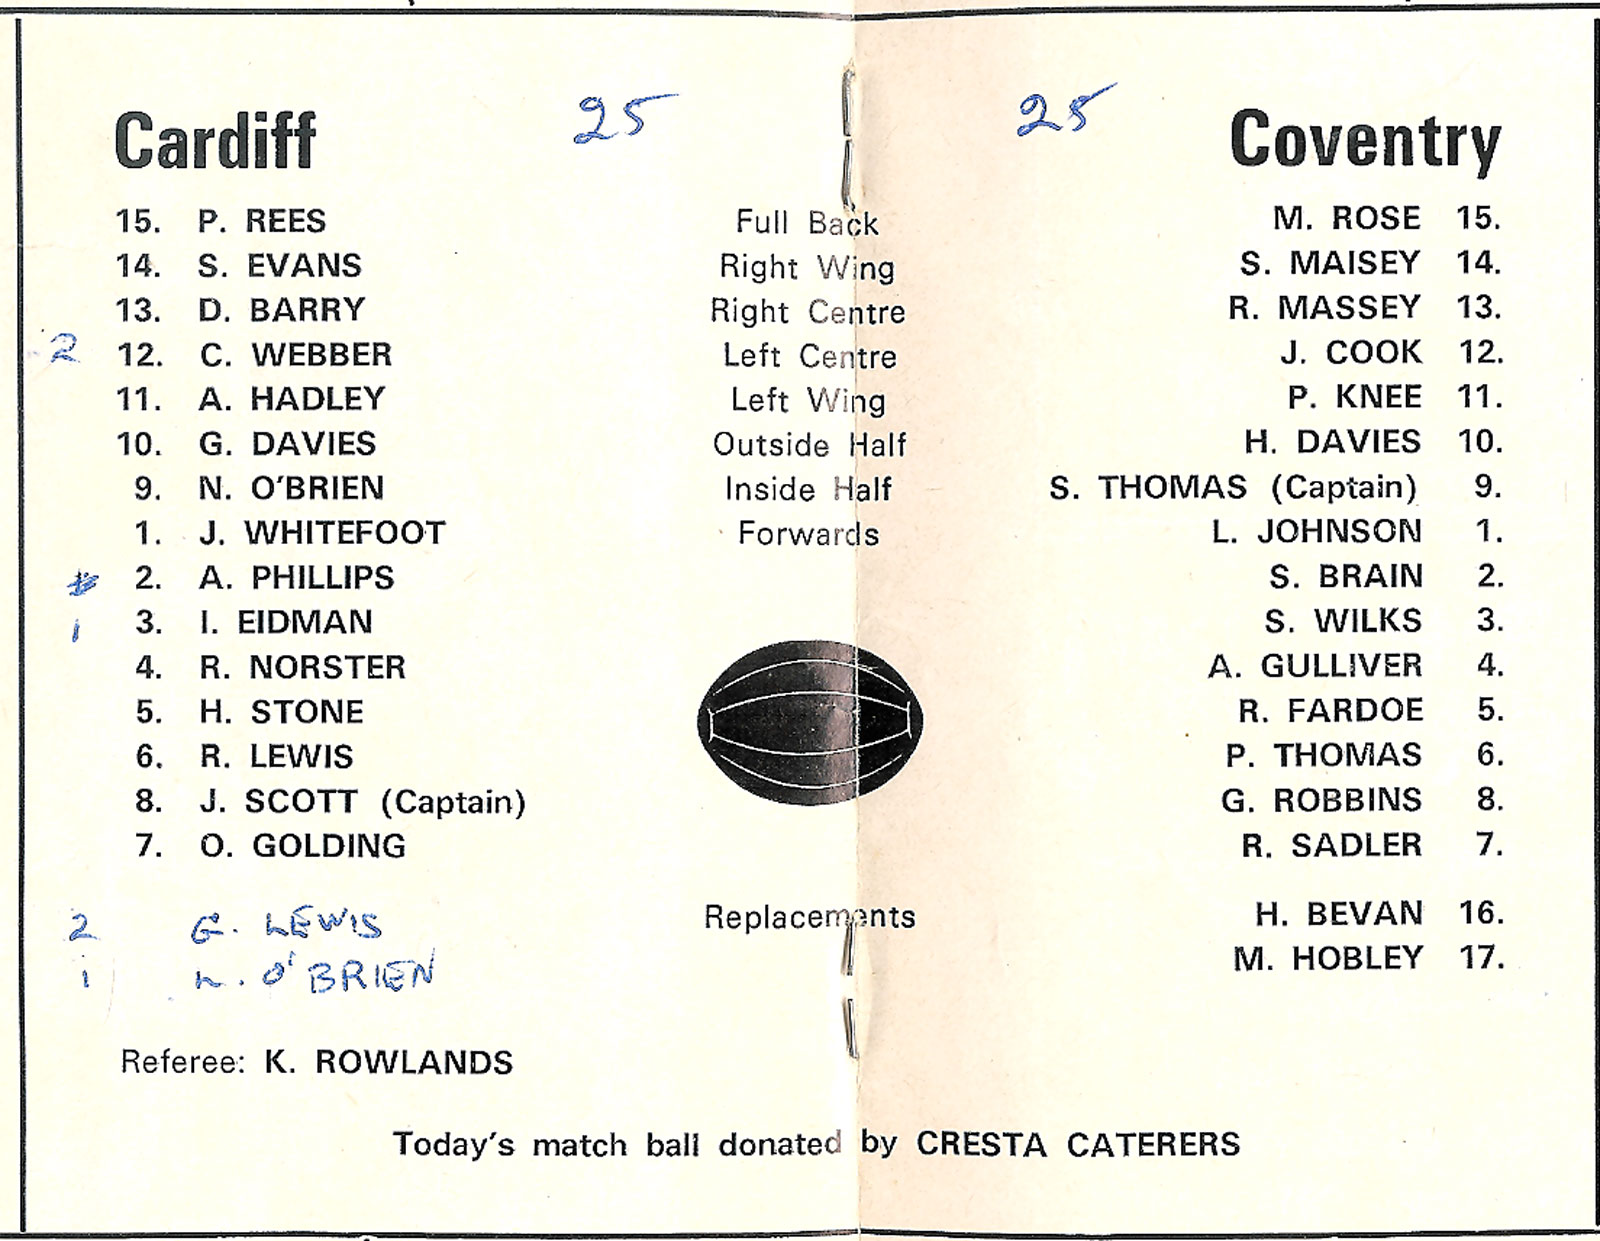 Cardiff 25 25 Coventry
15. P. REES Full Back M. ROSE 15.
14. S. EVANS Right Wing S. MAISEY 14.
13. D. BARRY Right Centre R. MASSEY 13.
2 12. C. WEBBER Left Centre J. COOK 12.
11. A. HADLEY Left Wing P. KNEE 11.
10. G. DAVIES Outside Half H. DAVIES 10.
9. N. O'BRIEN Inside Half S. THOMAS (Captain) 9.
1. J. WHITEFOOT Forwards L. JOHNSON 1.
2. A. PHILLIPS S. BRAIN 2.
1 3. I. EIDMAN S. WILKS 3.
4. R. NORSTER A. GULLIVER 4.
5. H. STONE R. FARDOE 5.
6. R. LEWIS P. THOMAS 6.
8. J. SCOTT (Captain) G. ROBBINS 8.
7. O. GOLDING R. SADLER 7.
2 G. LEWIS Replacements H. BEVAN 16.
1 O'BRIEN M. HOBLEY 17.
Referee: K. ROWLANDS
Today's match ball donated by CRESTA CATERERS